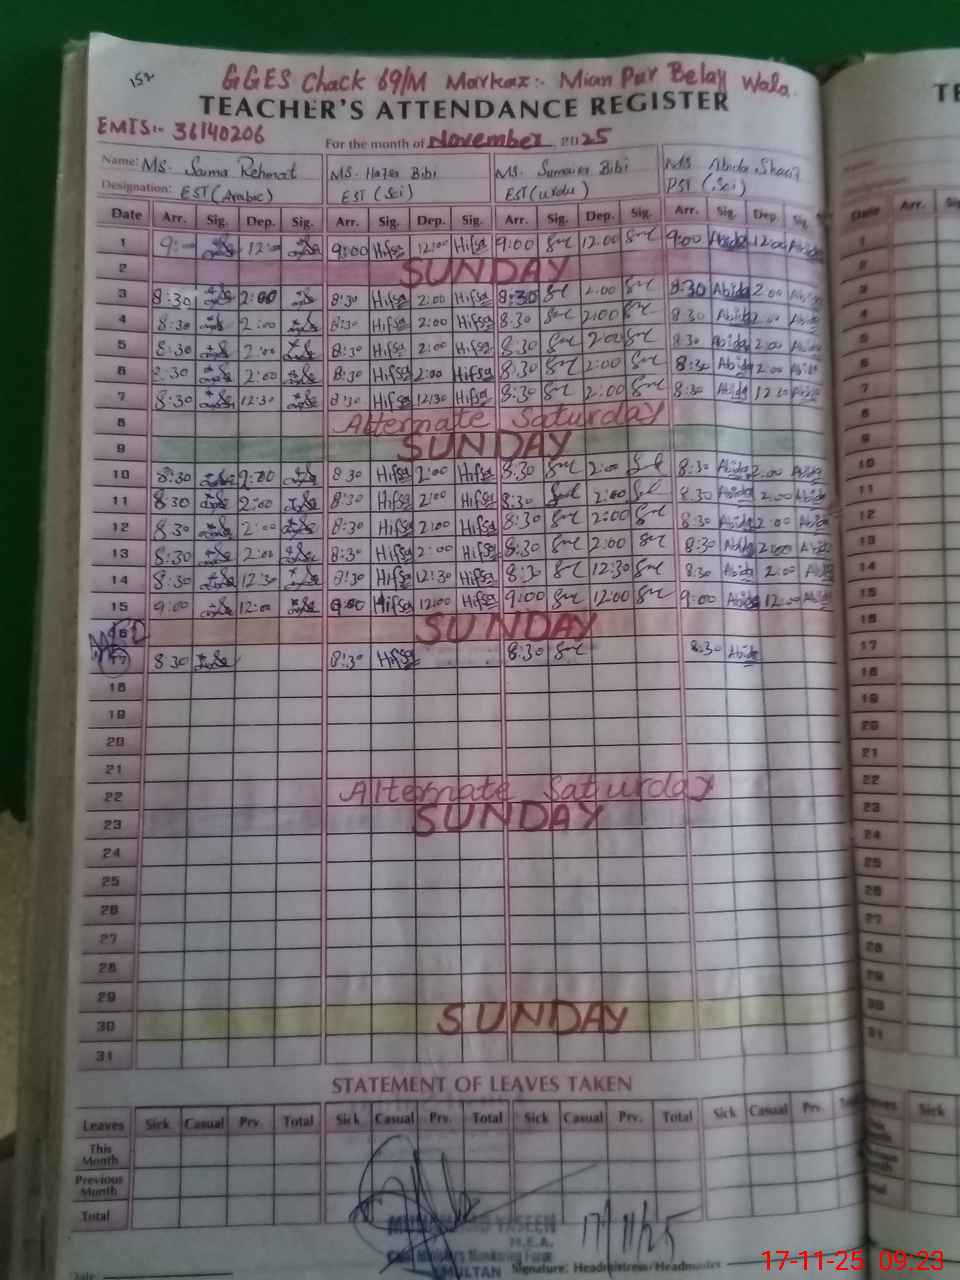 152
GGES Chack 69/M Markaz:- Mian Pur Belay Wala.
TEACHER'S ATTENDANCE REGISTER
EMIS:- 36140206
For the month of November, 2025
Name: Ms. Saima Rehmat Ms. Hafsa Bibi Ms. Sumaira Bibi Ms. Abida Sharif
Designation: EST (Arabic) EST (Sci) EST (Urdu) PST (Sci)
Date Arr. Sig. Dep. Sig. Arr. Sig. Dep. Sig. Arr. Sig. Dep. Sig. Arr. Sig. Dep. Sig.
1 9:00 12:00 9:00 Hifsa 12:00 Hifsa 9:00 12:00 9:00 Abida 12:00 Abida
2 SUNDAY
3 8:30 2:00 8:30 Hifsa 2:00 Hifsa 8:30 2:00 8:30 Abida 2:00 Abida
4 8:30 2:00 8:30 Hifsa 2:00 Hifsa 8:30 2:00 8:30 Abida 2:00 Abida
5 8:30 2:00 8:30 Hifsa 2:00 Hifsa 8:30 2:00 8:30 Abida 2:00 Abida
6 8:30 2:00 8:30 Hifsa 2:00 Hifsa 8:30 2:00 8:30 Abida 2:00 Abida
7 8:30 12:30 8:30 Hifsa 12:30 Hifsa 8:30 2:00 8:30 Abida 12:30 Abida
8 Alternate Saturday
9 SUNDAY
10 8:30 2:00 8:30 Hifsa 2:00 Hifsa 8:30 2:00 8:30 Abida 2:00 Abida
11 8:30 2:00 8:30 Hifsa 2:00 Hifsa 8:30 2:00 8:30 Abida 2:00 Abida
12 8:30 2:00 8:30 Hifsa 2:00 Hifsa 8:30 2:00 8:30 Abida 2:00 Abida
13 8:30 2:00 8:30 Hifsa 2:00 Hifsa 8:30 2:00 8:30 Abida 2:00 Abida
14 8:30 12:30 8:30 Hifsa 12:30 Hifsa 8:30 12:30 8:30 Abida 2:00 Abida
15 9:00 12:00 9:00 Hifsa 12:00 Hifsa 9:00 12:00 9:00 Abida 12:00 Abida
16 SUNDAY
17 8:30 8:30 Hifsa 8:30 8:30 Abida
18
19
20
21
22 Alternate Saturday
23 SUNDAY
24
25
26
27
28
29
30 SUNDAY
31
STATEMENT OF LEAVES TAKEN
Leaves Sick Casual Prv. Total Sick Casual Prv. Total Sick Casual Prv. Total Sick Casual Prv.
This Month
Previous Month
Total
YASEEN
M.E.A.
Chief Minister's Monitoring Force
MULTAN
17/11/25
Signature: Headmistress/Headmaster
17-11-25 09:23
TE
Date Arr.
1
2
3
4
5
6
7
8
9
10
11
12
13
14
15
16
17
18
19
20
21
22
23
24
25
26
27
28
29
30
31
Sick